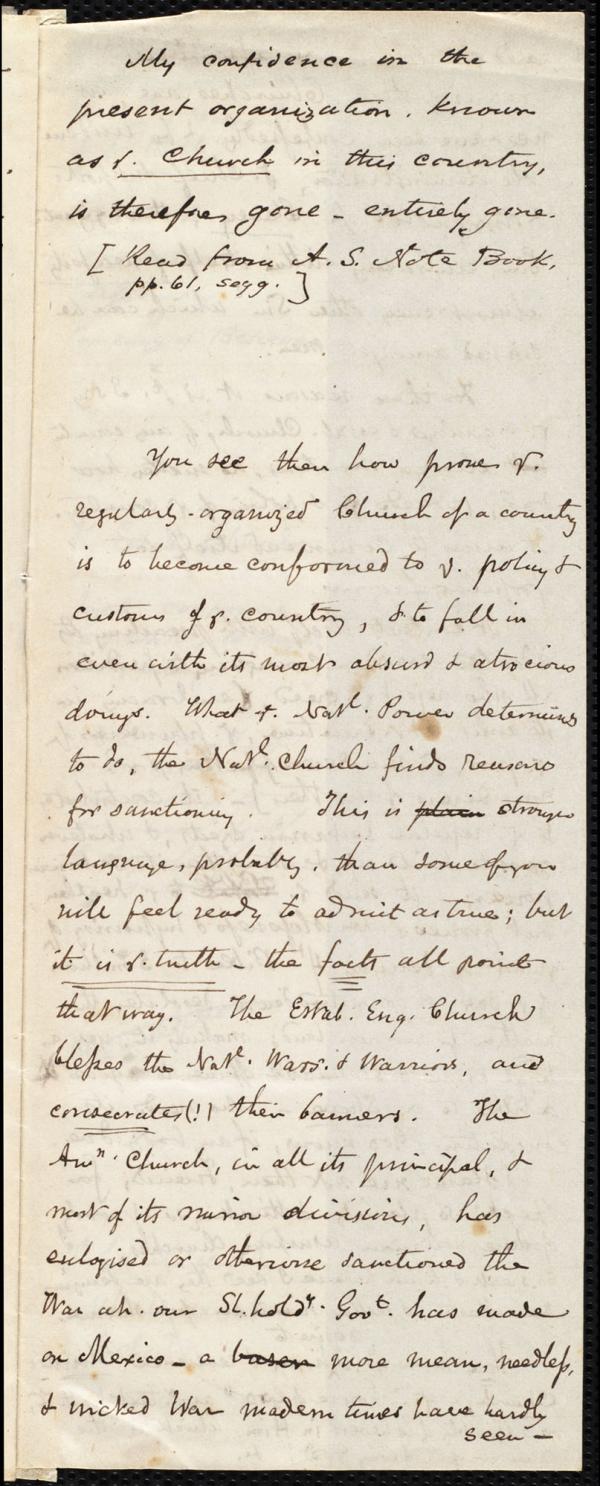 My confidence in the
present organization, known
as y. Church in this country,
is therefore gone - entirely gone.
[ Read from A. S. Note Book,
pp. 61, seqq. ]
You see then how prone y.
regularly-organized Church of a country
is to become conformed to y. policy &
customs of y. country, & to fall in
even with its most absurd & atrocious
doings. What y. Natl. Power determines
to do, the Natl. Church finds reasons
for sanctioning. This is plain strong
language, probably, than some of you
will feel ready to admit as true; but
it is y. truth - the facts all point
that way. The Estab. Eng. Church
blesses the Natl. Wars & Warriors, and
consecrates(!) their banners. The
Amn. Church, in all its principal, &
most of its minor divisions, has
eulogised or otherwise sanctioned the
War wh. our Sl.holdg. Govt. has made
on Mexico - a baser more mean, needless,
& wicked War modern times have hardly
seen -